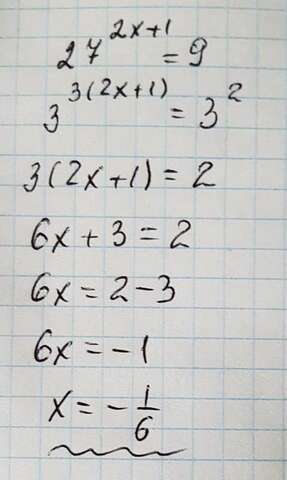 27^{2x+1} = 9
3^{3(2x+1)} = 3^2
3(2x+1) = 2
6x + 3 = 2
6x = 2 - 3
6x = -1
x = -\frac{1}{6}